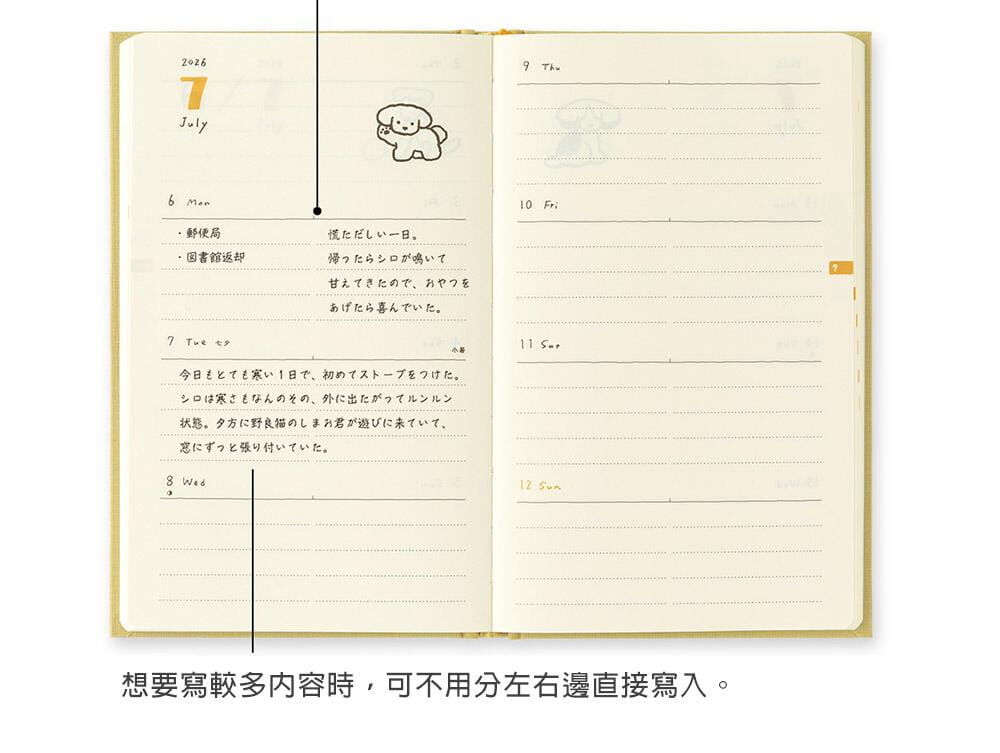 2026
7
July
6 Mon
・郵便局
・図書館返却
慌ただしい一日。
帰ったらシロが鳴いて
甘えてきたので、おやつを
あげたら喜んでいた。
7 Tue 七夕
小暑
今日もとても寒い1日で、初めてストーブをつけた。
シロは寒さもなんのその、外に出たがってルンルン
状態。夕方に野良猫のしまお君が遊びに来ていて、
窓にずっと張り付いていた。
8 Wed
9 Thu
10 Fri
11 Sat
12 Sun
7
想要寫較多內容時，可不用分左右邊直接寫入。